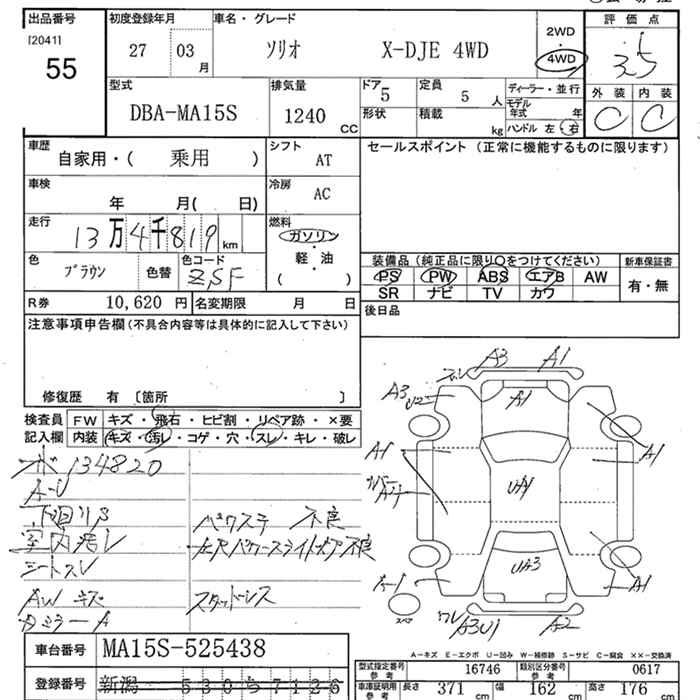 出品番号
[20411]
55
初度登録年月
27 03 月
車名・グレード
ソリオ X-DJE 4WD
2WD
・
4WD
評価点
3.5
外装 内装
C C
型式
DBA-MA15S
排気量
1240 CC
ドア
5
定員
5 人
形状
積載
kg
ディーラー・並行
モデル年式 年
ハンドル 左・右
車歴
自家用・( 乗用 )
シフト
AT
車検
年 月( 日)
冷房
AC
走行
13万4千819 km
燃料
ガソリン
・
軽油
( )
色
ブラウン
色替
色コード
ZSF
R券 10,620 円
名変期限 月 日
セールスポイント (正常に機能するものに限ります)
装備品 (純正品に限り○をつけてください)
PS PW ABS エアB AW
SR ナビ TV カワ
新車保証書
有・無
後日品
注意事項申告欄(不具合内容等は具体的に記入して下さい)
修復歴 有 〔箇所 〕
検査員記入欄
FW キズ・飛石・ヒビ割・リペア跡・×要
内装 キズ・汚レ・コゲ・穴・スレ・キレ・破レ
134820
下廻りS
室内汚レ
シートスレ
AW キズ
パワステ 不良
左Rパワースライドドア不良
スタッドレス
A3 A1
A3
U2
A1
A1
A1
UA1
A-1
UA3
A1
スペア
ワレ
A3U1 A2
A-キズ E-エクボ U-凹み W-補修跡 S-サビ C-腐食 ××-交換済
車台番号 MA15S-525438
登録番号 新潟 530 ら 7126
型式指定番号 参考 16746
類別区分番号 参考 0617
車庫証明用 参考 長さ 371 cm 幅 162 cm 高さ 176 cm